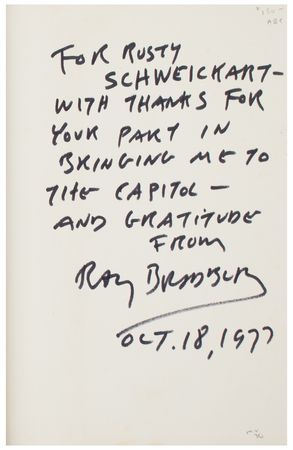 FOR RUSTY
SCHWEICKART—
WITH THANKS FOR
YOUR PART IN
BRINGING ME TO
THE CAPITOL—
AND GRATITUDE
FROM
RAY BRADBURY
OCT. 18, 1977